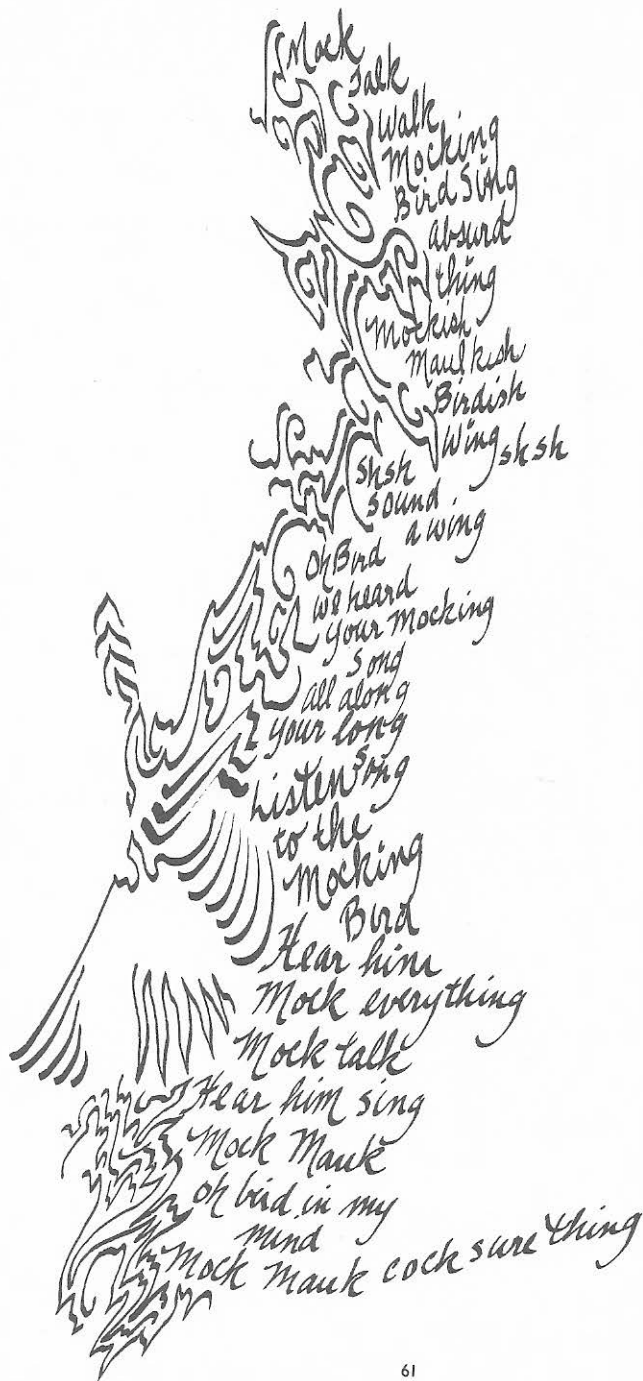 Mock
Talk
Walk
Mocking
Bird Sing
absurd
thing
Mockish
Maulkish
Birdish
Wing shsh
shsh
sound
a wing
Oh Bird
we heard
your mocking
song
all along
your long
song
Listen
to the
Mocking
Bird
Hear him
Mock everything
Mock talk
Hear him sing
Mock Mauk
oh bird in my
mind
Mock Mauk cock sure thing
61